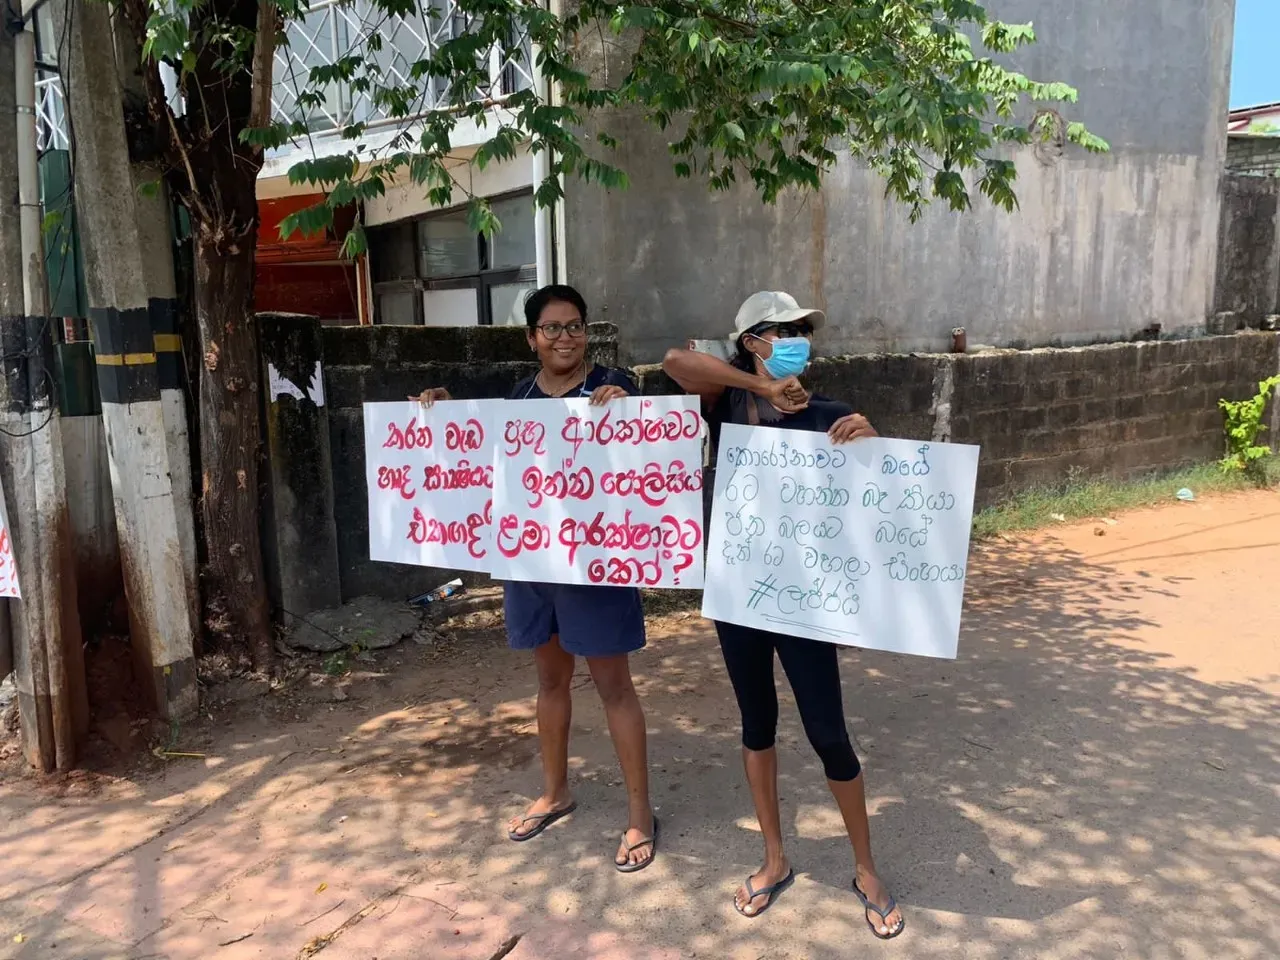 කරන වැඩ
හෘද සාක්ෂියට
එකඟද
ප්‍රභූ ආරක්ෂාවට
ඉන්න පොලීසිය
ළමා ආරක්ෂාවට
කෝ?
කොරෝනාවට බයේ
රට වහන්න බෑ කියා
ජන බලයට බයේ
දැන් රට වහලා සිංහයා
#ලැජ්ජයි